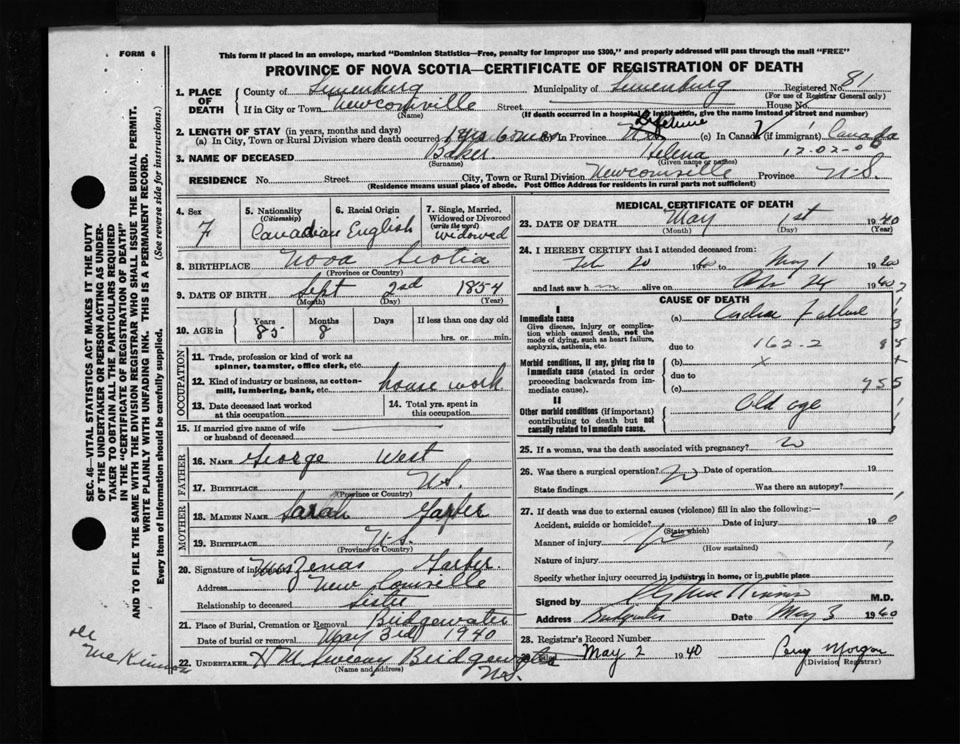 FORM 6
This form if placed in an envelope, marked "Dominion Statistics—Free, penalty for improper use $300," and properly addressed will pass through the mail "FREE"
PROVINCE OF NOVA SCOTIA—CERTIFICATE OF REGISTRATION OF DEATH
SEC. 46—VITAL STATISTICS ACT MAKES IT THE DUTY
OF THE UNDERTAKER OR PERSON ACTING AS UNDER-
TAKER TO OBTAIN ALL THE PARTICULARS REQUIRED
IN THE "CERTIFICATE OF REGISTRATION OF DEATH"
AND TO FILE THE SAME WITH THE DIVISION REGISTRAR WHO SHALL ISSUE THE BURIAL PERMIT.
WRITE PLAINLY WITH UNFADING INK. THIS IS A PERMANENT RECORD.
Every item of Information should be carefully supplied. (See reverse side for instructions.)
1. PLACE OF DEATH
County of Lunenburg Municipality of Lunenburg Registered No. 81
(For use of Registrar General only)
If in City or Town Newcomville Street House No.
(Name) (If death occurred in a hospital or institution, give the name instead of street and number)
2. LENGTH OF STAY (in years, months and days)
(a) In City, Town or Rural Division where death occurred in Province Lifetime (c) In Canada (if immigrant) Canada
3. NAME OF DECEASED Baker Helena 12-02-06
(Surname) (Given name or names)
RESIDENCE No. Street City, Town or Rural Division Newcomville Province N.S.
(Residence means usual place of abode. Post Office Address for residents in rural parts not sufficient)
4. Sex F
5. Nationality (Citizenship) Canadian
6. Racial Origin English
7. Single, Married, Widowed or Divorced (write the word) Widowed
8. BIRTHPLACE Nova Scotia
(Province or Country)
9. DATE OF BIRTH Sept 2nd 1854
(Month) (Day) (Year)
10. AGE in Years 85 Months 8 Days If less than one day old hrs. or min.
OCCUPATION
11. Trade, profession or kind of work as spinner, teamster, office clerk, etc.
12. Kind of industry or business, as cotton-mill, lumbering, bank, etc. house work
13. Date deceased last worked at this occupation
14. Total yrs. spent in this occupation
15. If married give name of wife or husband of deceased
FATHER
16. NAME George West
17. BIRTHPLACE N.S.
(Province or Country)
MOTHER
18. MAIDEN NAME Sarah
19. BIRTHPLACE N.S.
(Province or Country)
20. Signature of informant Mrs Zenas
Address New Comville
Relationship to deceased Sister
21. Place of Burial, Cremation or Removal Bridgewater
Date of burial or removal May 3rd 1940
22. UNDERTAKER Bridgewater N.S.
(Name and address)
Dr McKinnon
MEDICAL CERTIFICATE OF DEATH
23. DATE OF DEATH May 1st 1940
(Month) (Day) (Year)
24. I HEREBY CERTIFY that I attended deceased from:
Feb 20 1940 to May 1 1940
and last saw h alive on 24 1940
CAUSE OF DEATH
I
Immediate cause
Give disease, injury or complication which caused death, not the mode of dying, such as heart failure, asphyxia, asthenia, etc.
(a) Cardiac Failure
due to 162-2
Morbid conditions, if any, giving rise to immediate cause (stated in order proceeding backwards from immediate cause).
(b) x
due to
(c)
II
Other morbid conditions (if important) contributing to death but not causally related to immediate cause.
Old age
25. If a woman, was the death associated with pregnancy?
26. Was there a surgical operation? Date of operation 19
State findings Was there an autopsy?
27. If death was due to external causes (violence) fill in also the following:—
Accident, suicide or homicide? Date of injury 19
(State which)
Manner of injury
(How sustained)
Nature of injury
Specify whether injury occurred in industry, in home, or in public place
Signed by M.D.
Address Bridgewater Date May 3 1940
28. Registrar's Record Number
Filed May 2 1940 Percy Morgan
(Division Registrar)